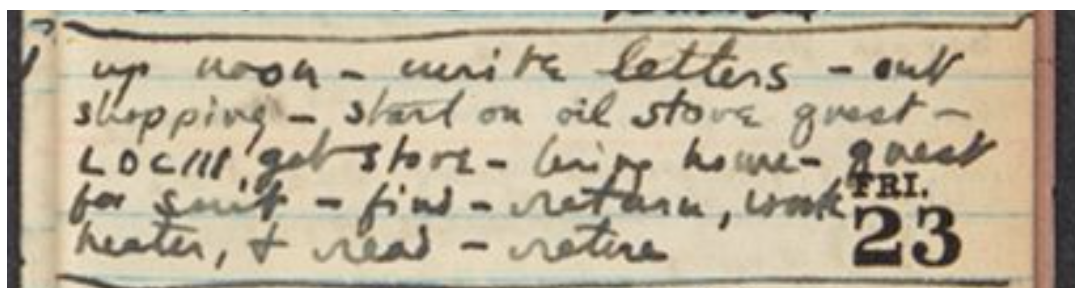 up noon – write letters – out
shopping – start on oil stove quest –
get stove – bring home – quest
for suit – find – return, work
FRI.
23
heater, & read – retire